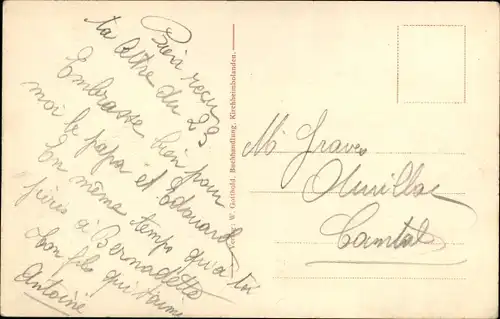 Bien reçu
ta lettre du 23
Embrasse bien pour
moi le papa et Edouard
En même temps qu'a toi
à Bernadette
ton fils qui t'aime
Antoine
Verlag: W. Gotthold, Buchhandlung, Kirchheimbolanden.
Mr Graves
Aurillac
Cantal